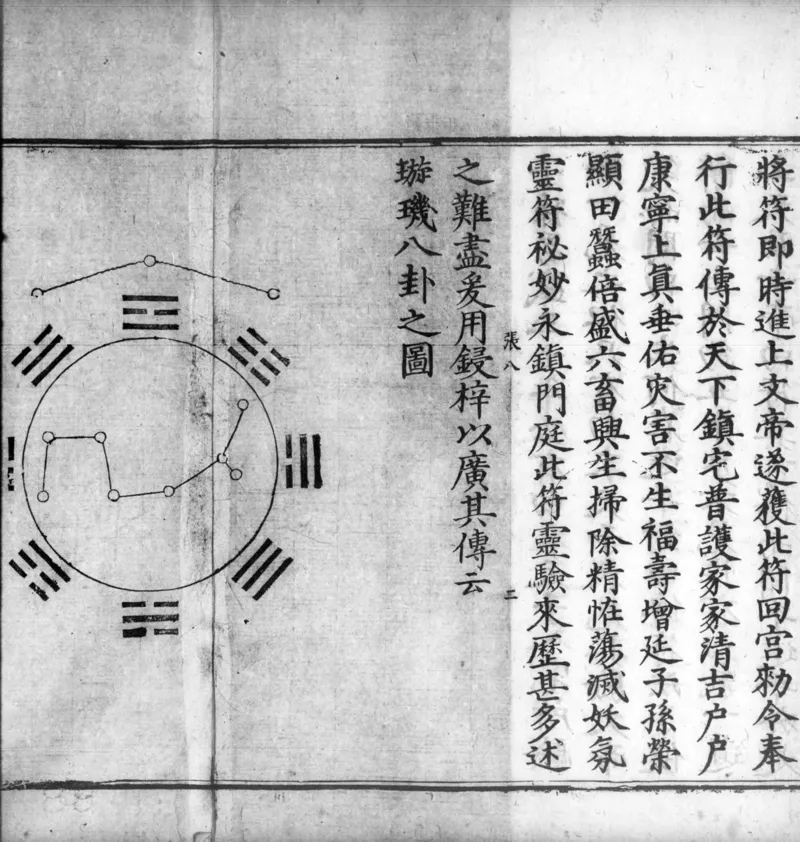 將符即時進上文帝遂獲此符回宮勑令奉
行此符傳於天下鎮宅普護家家清吉户户
康寧上眞垂佑灾害不生福壽增延子孫榮
顯田蠶倍盛六畜興生掃除精恠蕩滅妖氛
靈符祕妙永鎮門庭此符靈驗來歷甚多述
張八
二
之難盡爰用鋟梓以廣其傳云
璇璣八卦之圖